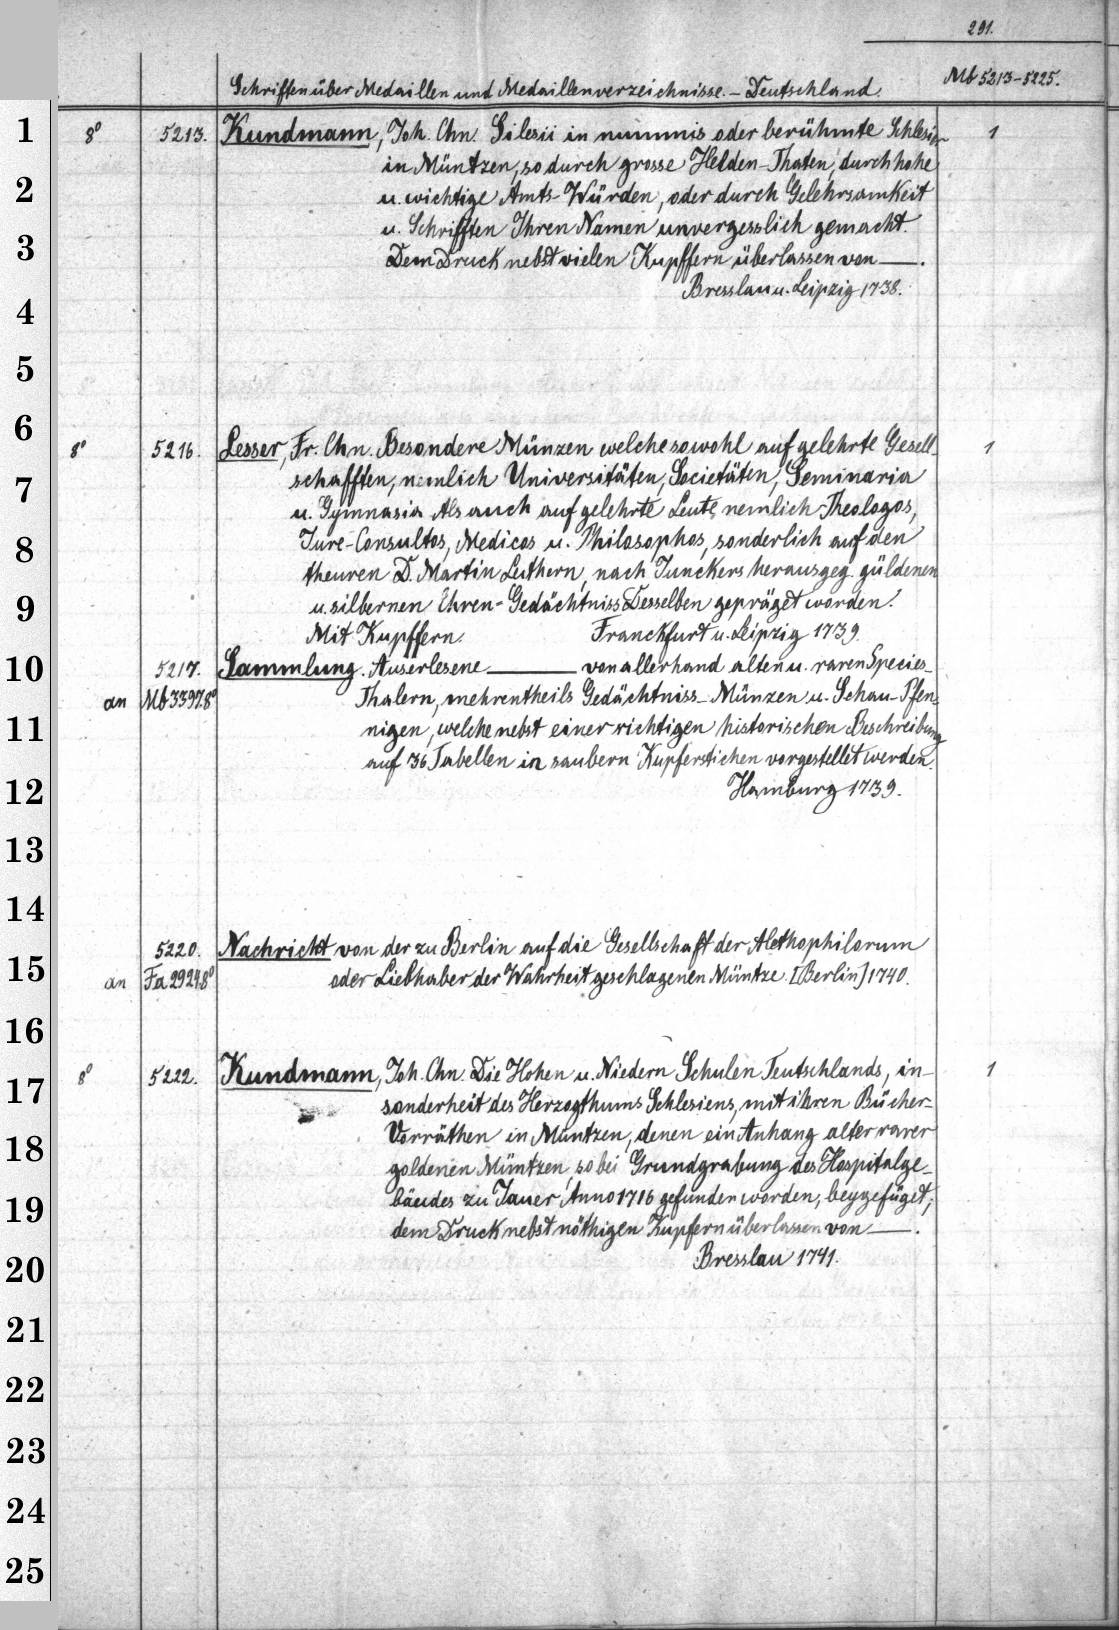 291.
Schriften über Medaillen und Medaillenverzeichnisse. – Deutschland.
Mb 5213–5225.
8° 5213. Kundmann, Joh. Chn. Silesii in nummis oder berühmte Schlesier 1
in Müntzen, so durch grosse Helden-Thaten, durch hohe
u. wichtige Amts-Würden, oder durch Gelehrsamkeit
u. Schrifften Ihren Namen unvergesslich gemacht.
Dem Druck nebst vielen Kupffern überlassen von —.
Bresslau u. Leipzig 1738.
8° 5216. Lesser, Fr. Chn. Besondere Münzen welche sowohl auf gelehrte Gesell- 1
schafften, nemlich Universitäten, Societäten, Seminaria
u. Gymnasia Als auch auf gelehrte Leute nemlich Theologos,
Jure-Consultos, Medicos u. Philosophos, sonderlich auf den
theuren D. Martin Luthern, nach Junckers herausgeg. güldenen
u. silbernen Ehren-Gedächtniss Desselben gepräget worden.
Mit Kupffern. Franckfurt u. Leipzig 1739.
5217. Sammlung. Auserlesene — von allerhand alten u. raren Species-
an Mb 3397.8° Thalern, mehrentheils Gedächtniss-Münzen u. Schau-Pfen-
nigen, welche nebst einer richtigen historischen Beschreibung
auf 36 Tabellen in saubern Kupferstichen vorgestellet werden.
Hamburg 1739.
5220. Nachricht von der zu Berlin auf die Gesellschaft der Alethophilorum
an Fa 2924.8° oder Liebhaber der Wahrheit geschlagenen Müntze. [Berlin] 1740.
8° 5222. Kundmann, Joh. Chn. Die Hohen u. Niedern Schulen Teutschlands, in- 1
sonderheit des Herzogthums Schlesiens, mit ihren Bücher-
Vorräthen in Müntzen, denen ein Anhang alter rarer
goldenen Müntzen, so bei Grundgrabung des Hospitalge-
bäudes zu Jauer Anno 1716 gefunden worden, beygefüget;
dem Druck nebst nöthigen Kupfern überlassen von —.
Bresslau 1741.
1
2
3
4
5
6
7
8
9
10
11
12
13
14
15
16
17
18
19
20
21
22
23
24
25